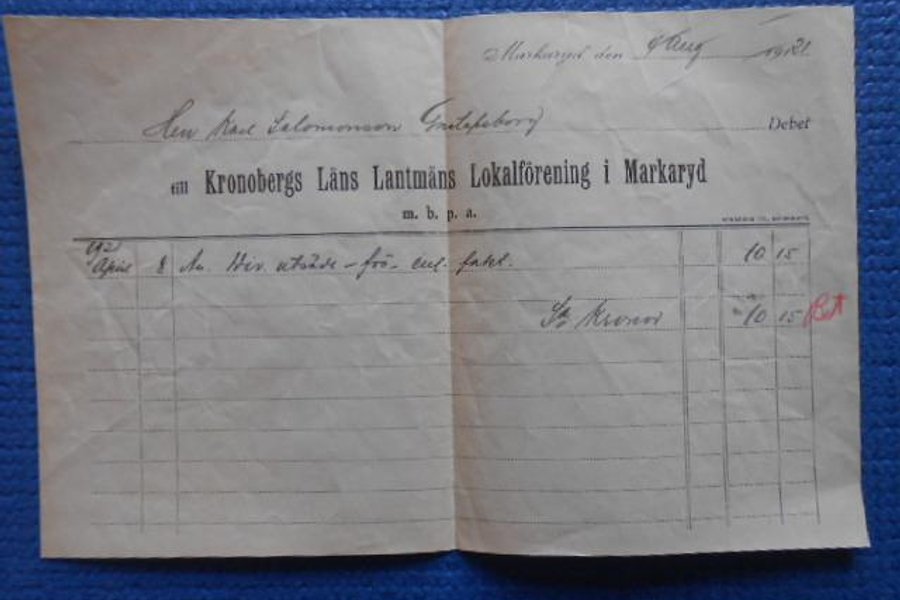 Markaryd den 9 Aug 1921
Herr Karl Salomonson Gustafsborg Debet
till Kronobergs Läns Lantmäns Lokalförening i Markaryd
m. b. p. a.
April 8 An. div. utsäde-frö- enl. fakt. 10 15
Sa Kronor 10 15 Bet